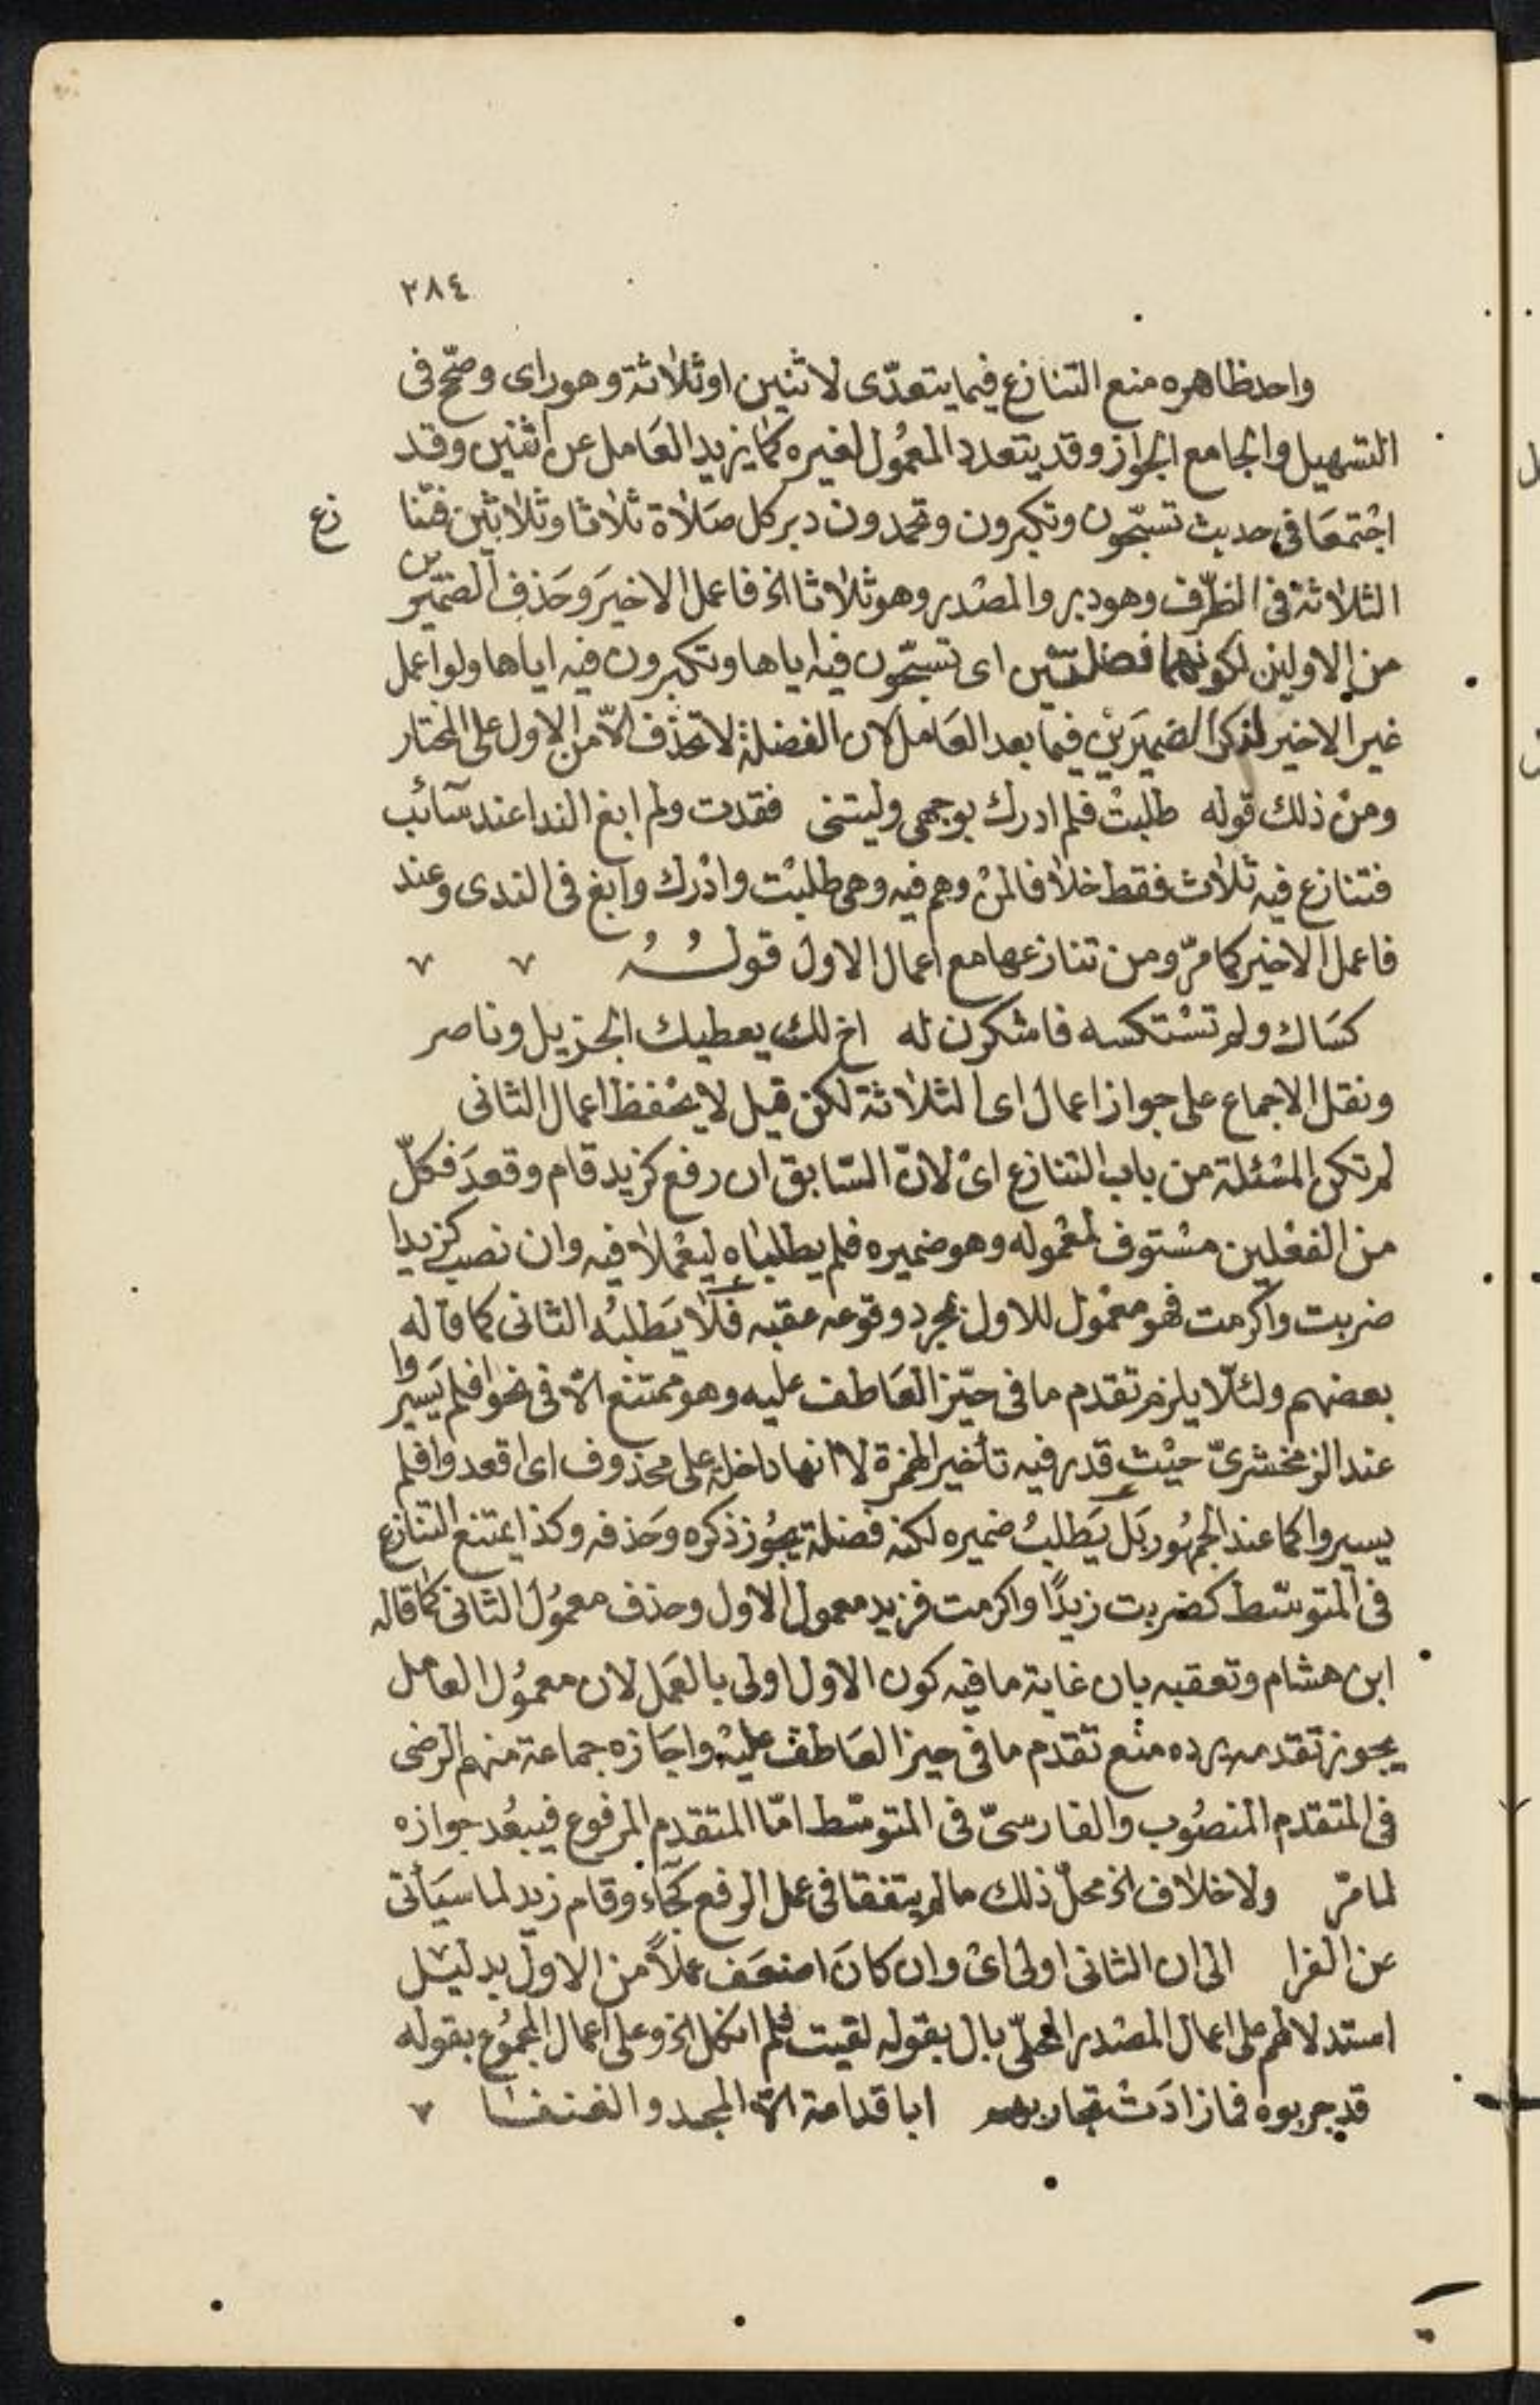 ٣٨٤
واحد ظاهره منع التنازع فيما يتعدّى لاثنين او ثلاثة وهو راى وصحّح فى
التسهيل والجامع الجواز وقد يتعدد المعمُول لغيره كما يزيد العَامل عن اثنين وقد
اجْتمعَا فى حديث تسبّحون وتكبرون وتحمدون دبر كل صَلاة ثلاثا وثلاثين فتنا
زع
الثلاثة فى الظرّف وهو دبر والمصْدر وهو ثلاثا الخ فاعمل الاخيرَ وحَذف الضميرين
من الاولين لكونهما فضلتين اى تسبّحون فيه اياها وتكبرون فيه اياها ولو اعمل
غير الاخير لذكر الضميَرين فيما بعد العَامل لان الفضلة لا تحذف الّا من الاول على المختار
ومنْ ذلك قوله طلبتْ فلم ادرك بوجهى وليتنى فقدت ولم ابغ الندا عند سَائب
فتنازع فيه ثلاث فقط خلافا لمنْ وهم فيه وهى طلبْت وادْرك وابغ فى الندى وعند
فاعمل الاخير كما مرّ ومن تنازعها مع اعمال الاول قولُهُ
كسَاك ولم تسْتكسه فاشكرن له اخ لك يعطيك الجزيل وناصر
ونقل الاجماع على جواز اعمال اى الثلاثة لكن قيل لا يحْفظ اعمال الثانى
لم تكن المسْئلة من باب التنازع اىْ لانّ السّابق ان رفع كزيد قام وقعدَ فكلّ
من الفعْلين مسْتوف لمعْموله وهو ضميره فلم يطلبَاه ليعْملا فيه وان نصب كزيدا
ضربت واكرمت فهو معمُول للاول بمجرد وقوعه عقبه فَلا يَطلبُه الثانى كما قاله
بعضهم ولئلّا يلزم تقدم ما فى حيّز العَاطف عليه وهو ممتنع الّا فى نحو افلم يَسيروا
عند الزمخشرىّ حيْث قدر فيه تأخير الهمزة لا انها داخلة على محذوف اى اقعدوا فلم
يسيروا كما عند الجمهُور بَل يَطلبُ ضميره لكنه فضلة يجُوز ذكره وحَذفه وكذا يمتنع التنازع
فى المتوسّط كضربت زيدًا واكرمت فزيد معمول الاول وحذف معمُول الثانى كما قاله
ابن هشام وتعقبه بان غاية ما فيه كون الاول اولى بالعَمل لان معمُول العامل
يجوز تقدمه يرده منْع تقدم ما فى حيز العَاطف عليْه واجَازه جماعة منهم الرضى
فى المتقدم المنصُوب والفارسىّ فى المتوسّط امّا المتقدم المرفوع فيبعُد جوازه
لما مرّ ولا خلاف الخ محلّ ذلك ما لم يتفقا فى عمل الرفع كجَاء وقام زيد لما سيَأتى
عن الفرا الى ان الثانى اولى اىْ وان كانَ اضعَف عملاً من الاول بدليْل
استدلالهم على اعمال المصْدر المحلّى بال بقوله لقيت فلم انكل الخ وعلى اعمال المجمُوع بقوله
قد جربوه فما زادَتْ تجاربهم ابا قدامة الّا المجد والفنفا